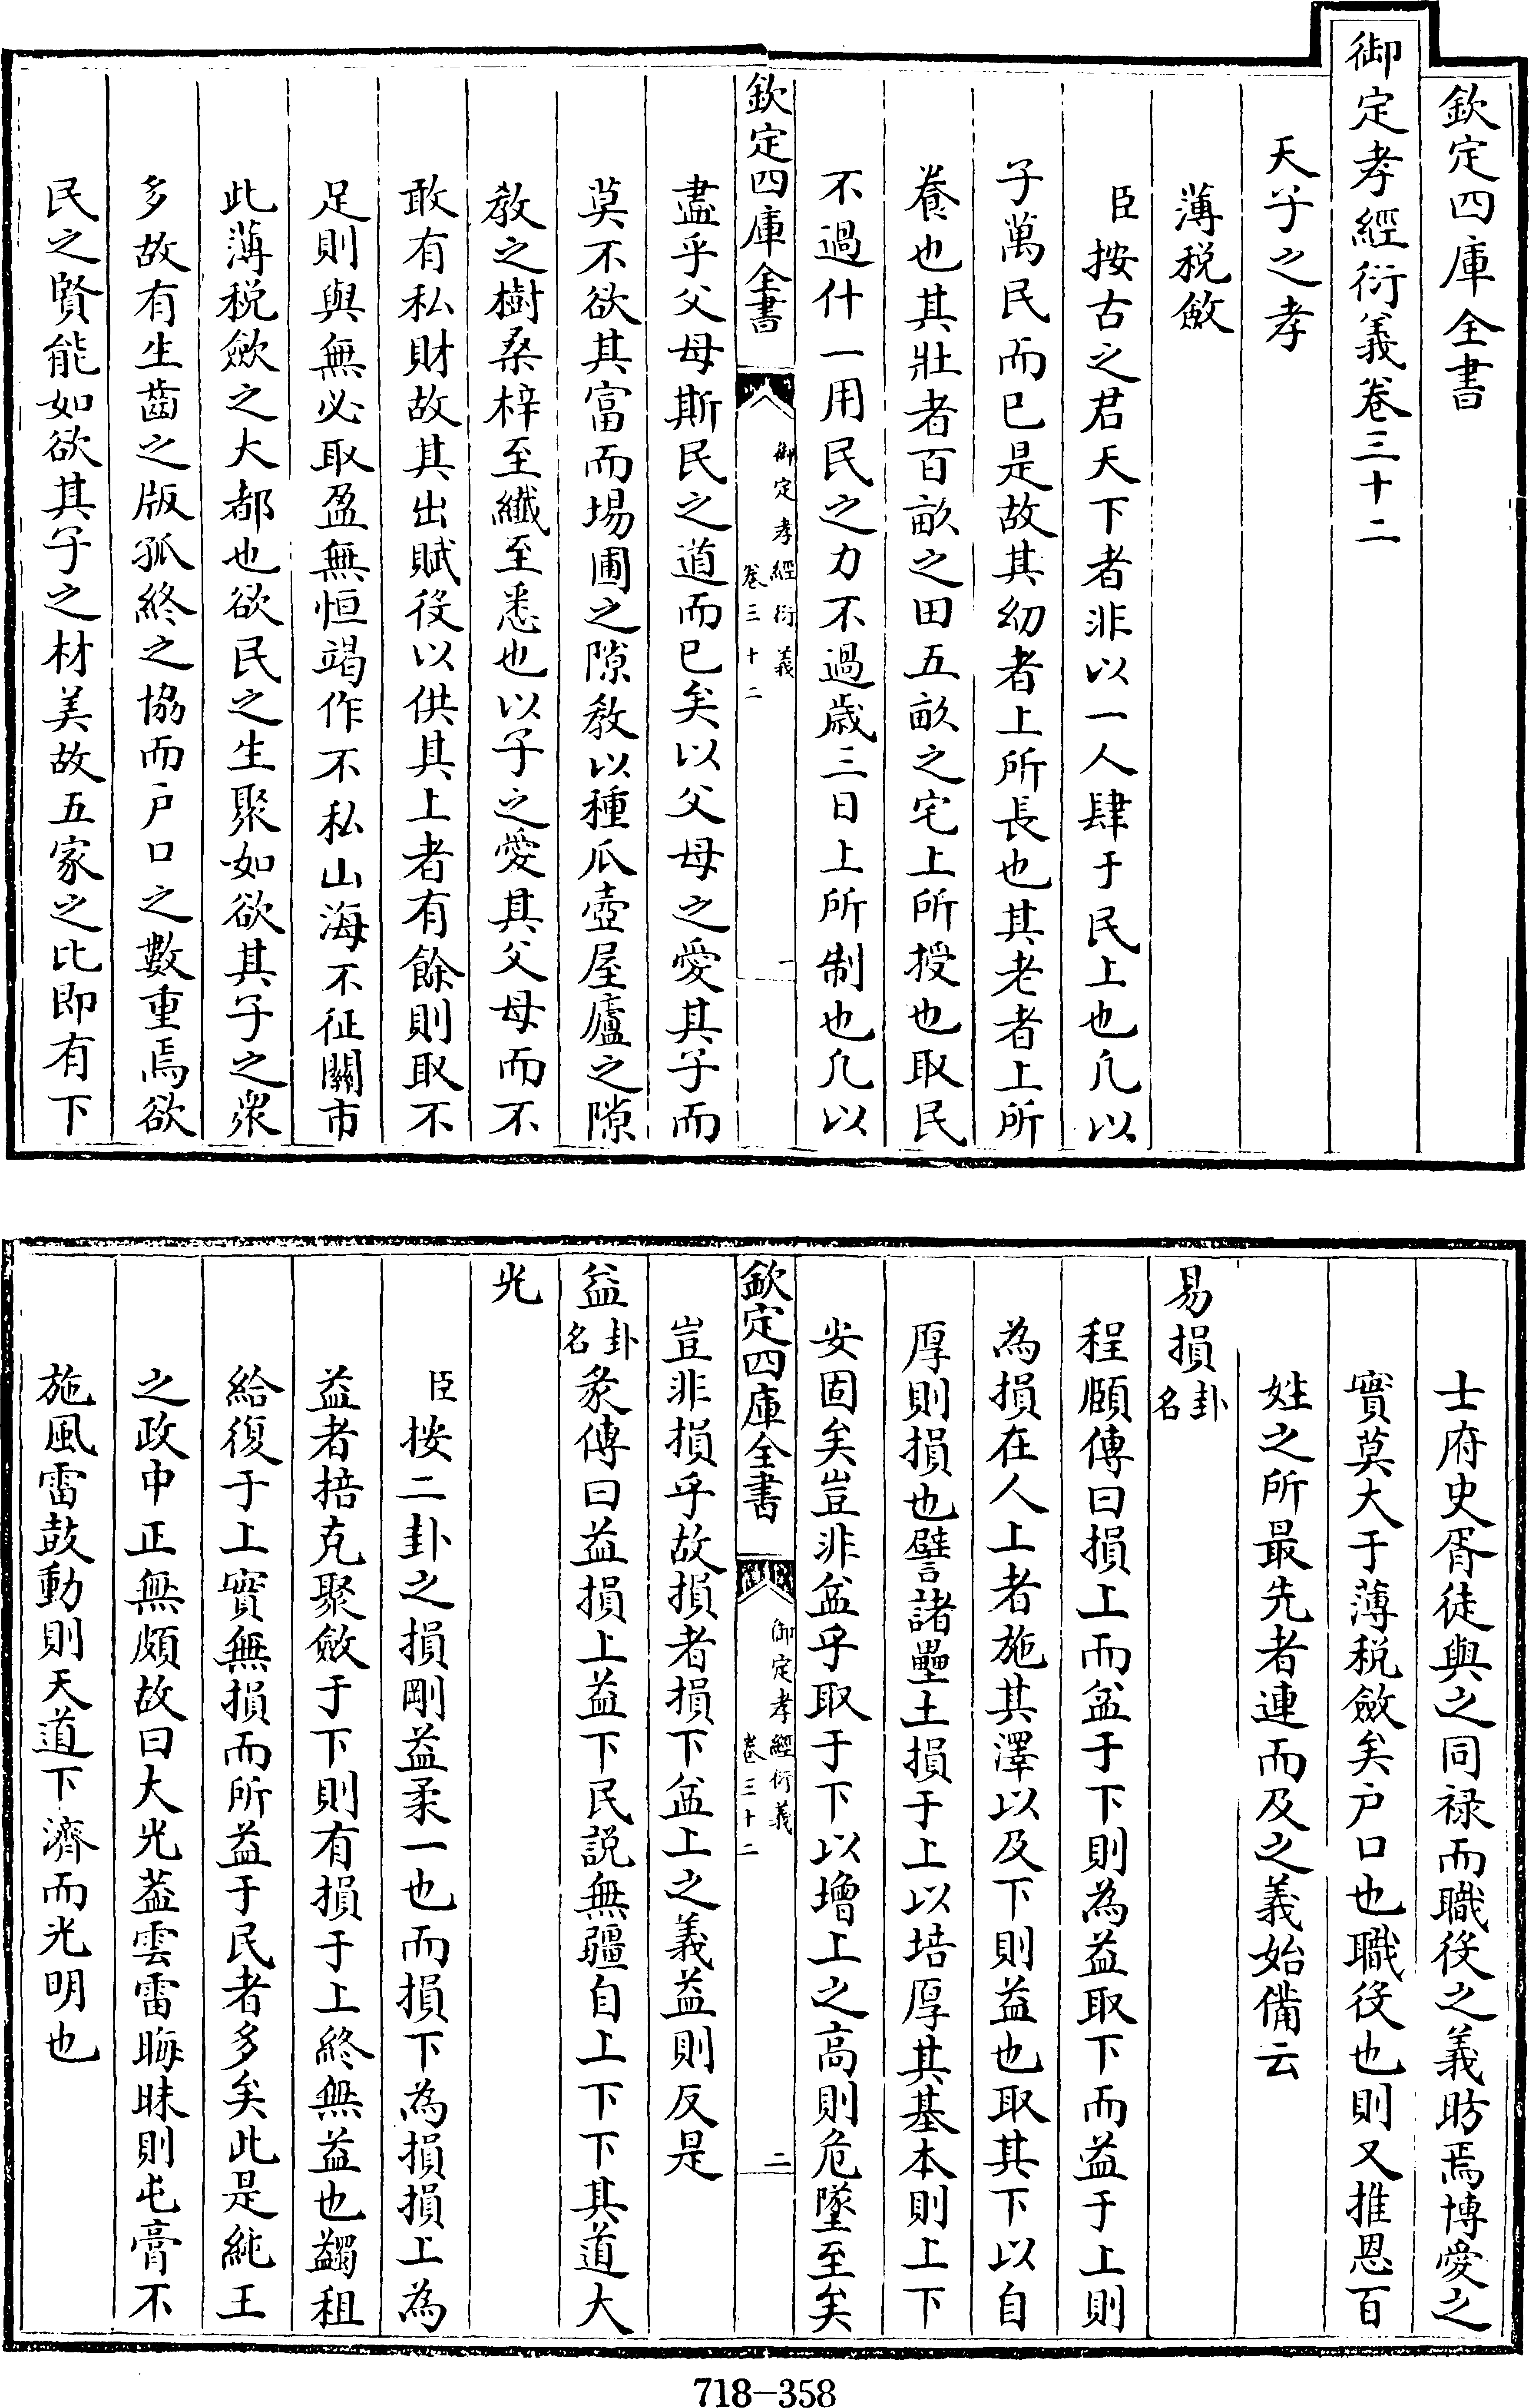 欽定四庫全書
御定孝經衍義卷三十二
天子之孝
薄税斂
臣按古之君天下者非以一人肆于民上也凡以
子萬民而已是故其幼者上所長也其老者上所
養也其壯者百畝之田五畝之宅上所授也取民
不過什一用民之力不過歲三日上所制也凡以
欽定四庫全書
御定孝經衍義
卷三十二
一
盡乎父母斯民之道而已矣以父母之愛其子而
莫不欲其富而場圃之隙教以種瓜壺屋廬之隙
教之樹桑梓至纎至悉也以子之愛其父母而不
敢有私財故其出賦役以供其上者有餘則取不
足則與無必取盈無恒竭作不私山海不征關市
此薄税歛之大都也欲民之生聚如欲其子之衆
多故有生齒之版孤終之協而户口之數重焉欲
民之賢能如欲其子之材美故五家之比即有下
士府史胥徒與之同禄而職役之義昉焉博愛之
實莫大于薄税斂矣户口也職役也則又推恩百
姓之所最先者連而及之義始備云
易損卦名
程頤傳曰損上而益于下則為益取下而益于上則
為損在人上者施其澤以及下則益也取其下以自
厚則損也譬諸壘土損于上以培厚其基本則上下
安固矣豈非益乎取于下以增上之高則危墜至矣
欽定四庫全書
御定孝經衍義
卷三十二
二
豈非損乎故損者損下益上之義益則反是
益卦名彖傳曰益損上益下民説無疆自上下下其道大
光
臣按二卦之損剛益柔一也而損下為損損上為
益者掊克聚斂于下則有損于上終無益也蠲租
給復于上實無損而所益于民者多矣此是純王
之政中正無頗故曰大光葢雲雷晦昧則屯膏不
施風雷鼓動則天道下濟而光明也
718-358